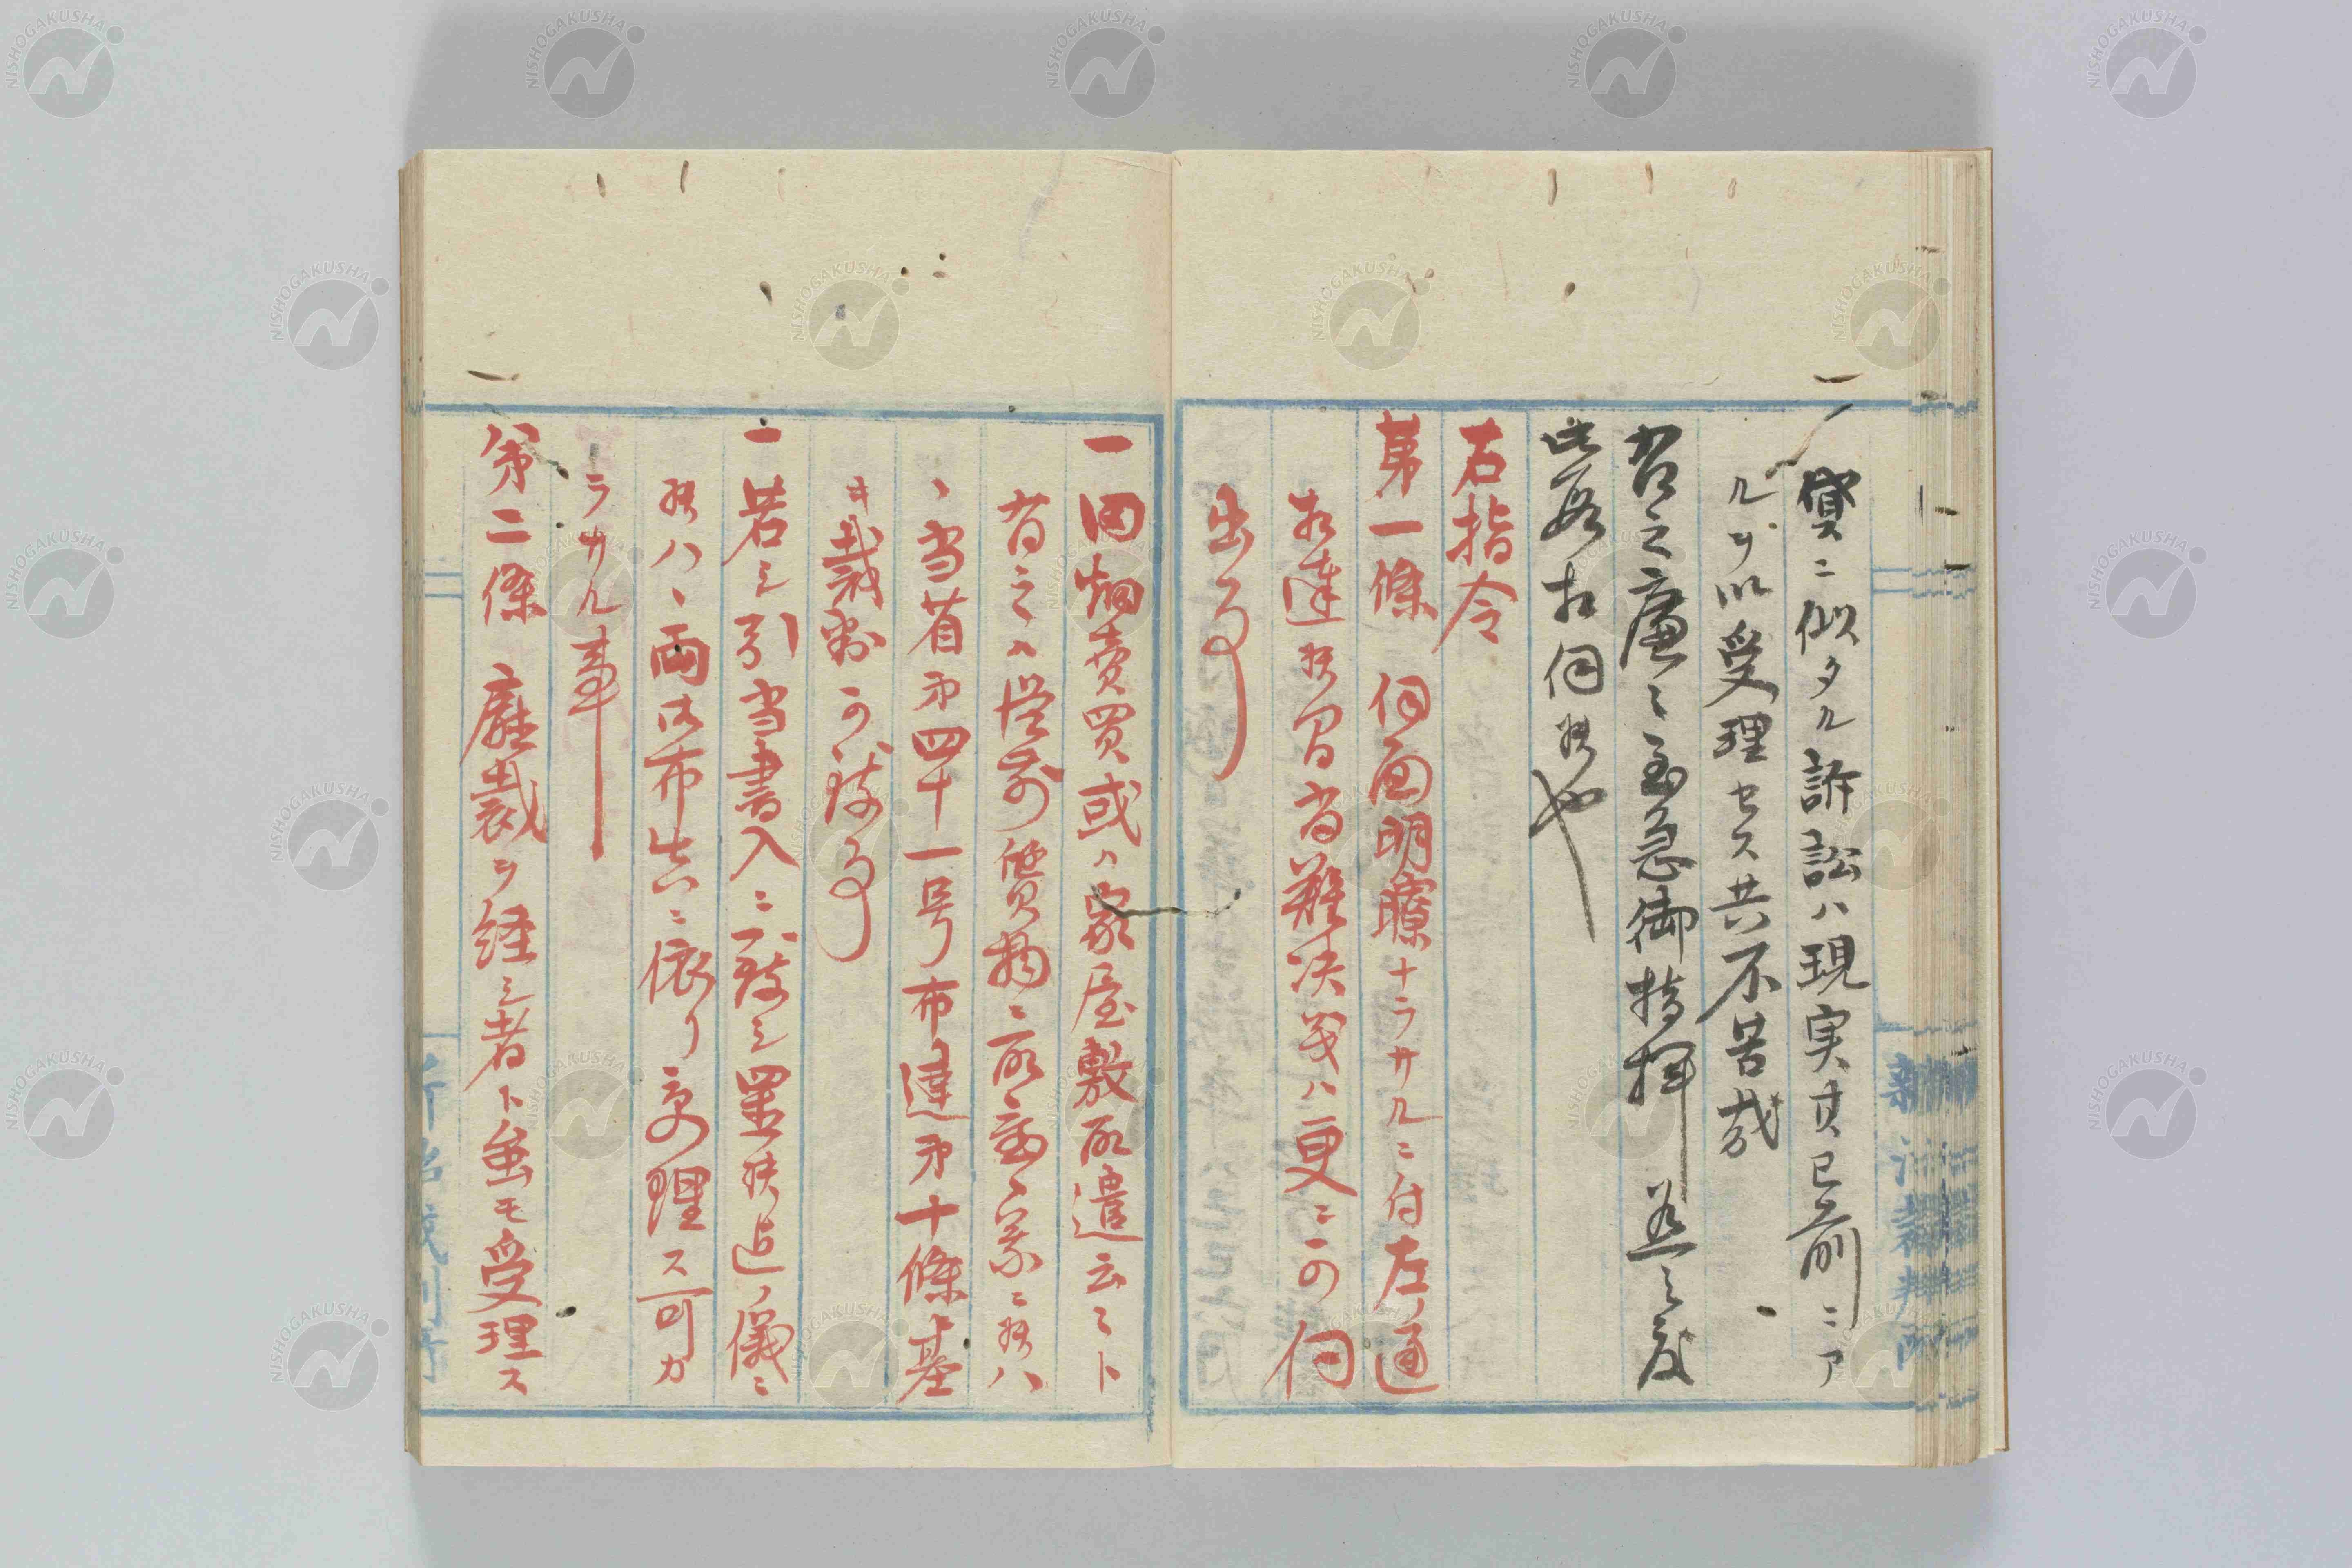 貸ニ似タル訴訟ハ現実其已前ニア
ルヲ以受理セス共不苦哉
右之廉々至急御指揮有之度
此段相伺候也
右指令
第一條 伺面明瞭ナラサルニ付左ノ通
相達候間尚難決義ハ更ニ可伺
出事
一田畑売買或ハ家屋敷取遣云々ト
有之ハ従前質物ニ取置候ハ
当省第四十一号布達第十條ニ基
キ裁判可致事
一若シ引当書入ニ致シ置候迄ノ儀ニ
候ハヽ両御布告ニ依リ受理ス可カ
ラサル事
第二條 廳裁ヲ経シ者ト雖モ受理ス
新治裁判所
NISHOGAKUSHA